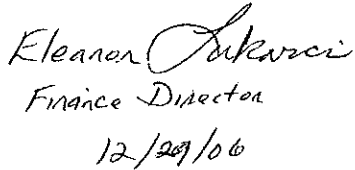 Eleanor
Finance Director
12/29/06